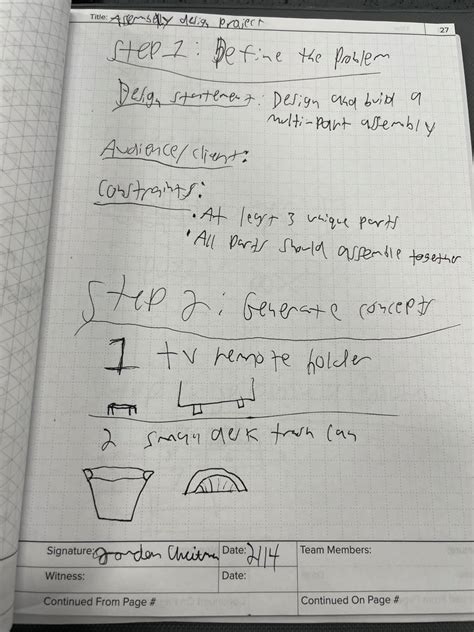 Title: Assembly design project
27
Step 1: Define the Problem
Design statement: Design and build a
multi-part assembly
Audience/client:
Constraints:
• At least 3 unique parts
• All parts should assemble together
Step 2: Generate concepts
1 tv remote holder
2 small desk trash can
Signature: Date: 2/14 Team Members:
Witness: Date:
Continued From Page # Continued On Page #